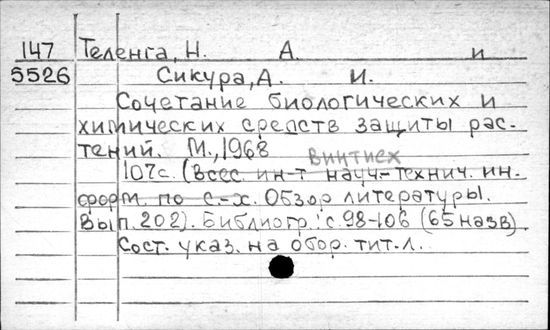 147 Теленга, Н. А. и
5526 Сикура, А. И.
Сочетание биологических и
химических средств защиты рас-
тений. М., 1968
ВИНТИСХ
107с. (Всес. ин-т науч.-технич. ин-
форм. по с.-х. Обзор литературы.
Вып. 202). Библиогр.: с. 98-106 (65 назв).
Сост. указ. на обор. тит. л.